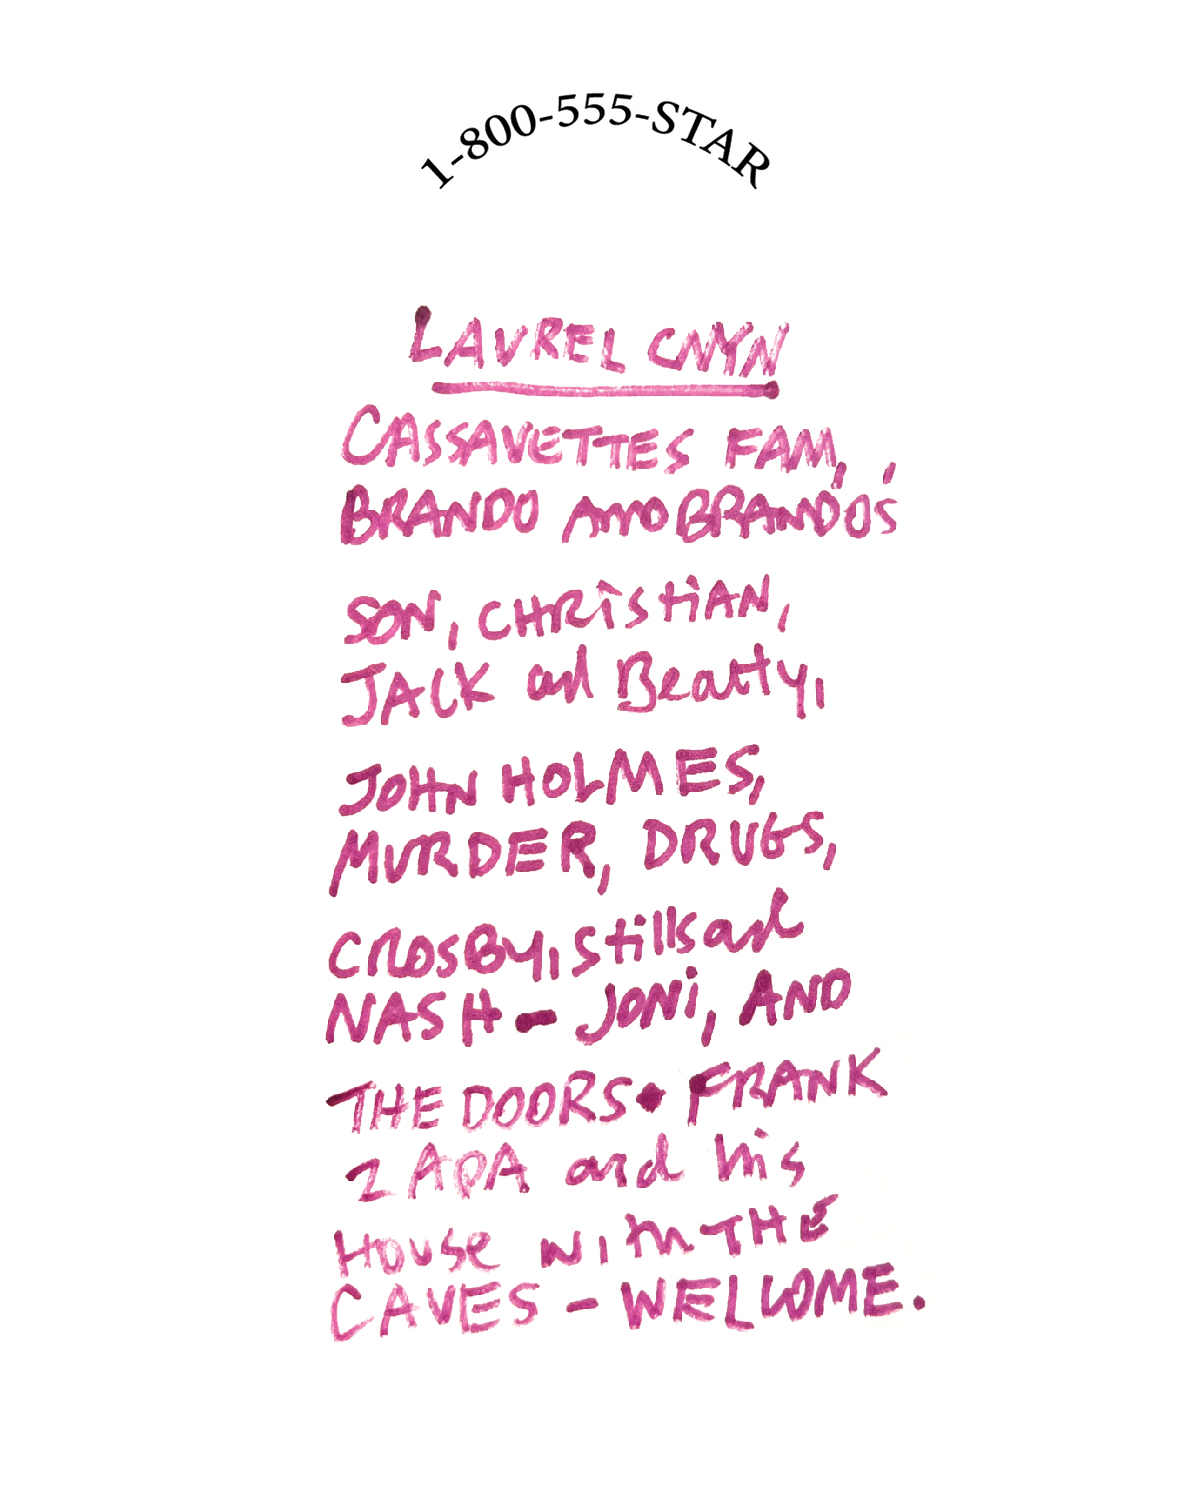 1-800-555-STAR
LAUREL CNYN
CASSAVETTES FAM,
BRANDO AND BRANDO'S
SON, CHRISTIAN,
JACK and Beatty,
JOHN HOLMES,
MURDER, DRUGS,
CROSBY, Stills and
NASH - JONi, AND
THE DOORS • FRANK
ZAPA and his
House with THE
CAVES - WELCOME.